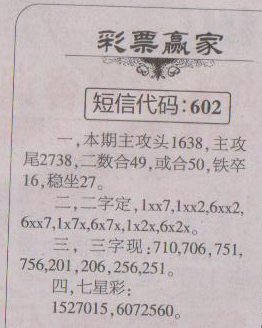 彩票赢家
短信代码:602
一,本期主攻头1638,主攻
尾2738,二数合49,或合50,铁卒
16,稳坐27。
二,二字定,1xx7,1xx2,6xx2,
6xx7,1x7x,6x7x,1x2x,6x2x。
三,三字现:710,706,751,
756,201,206,256,251。
四,七星彩:
1527015,6072560。